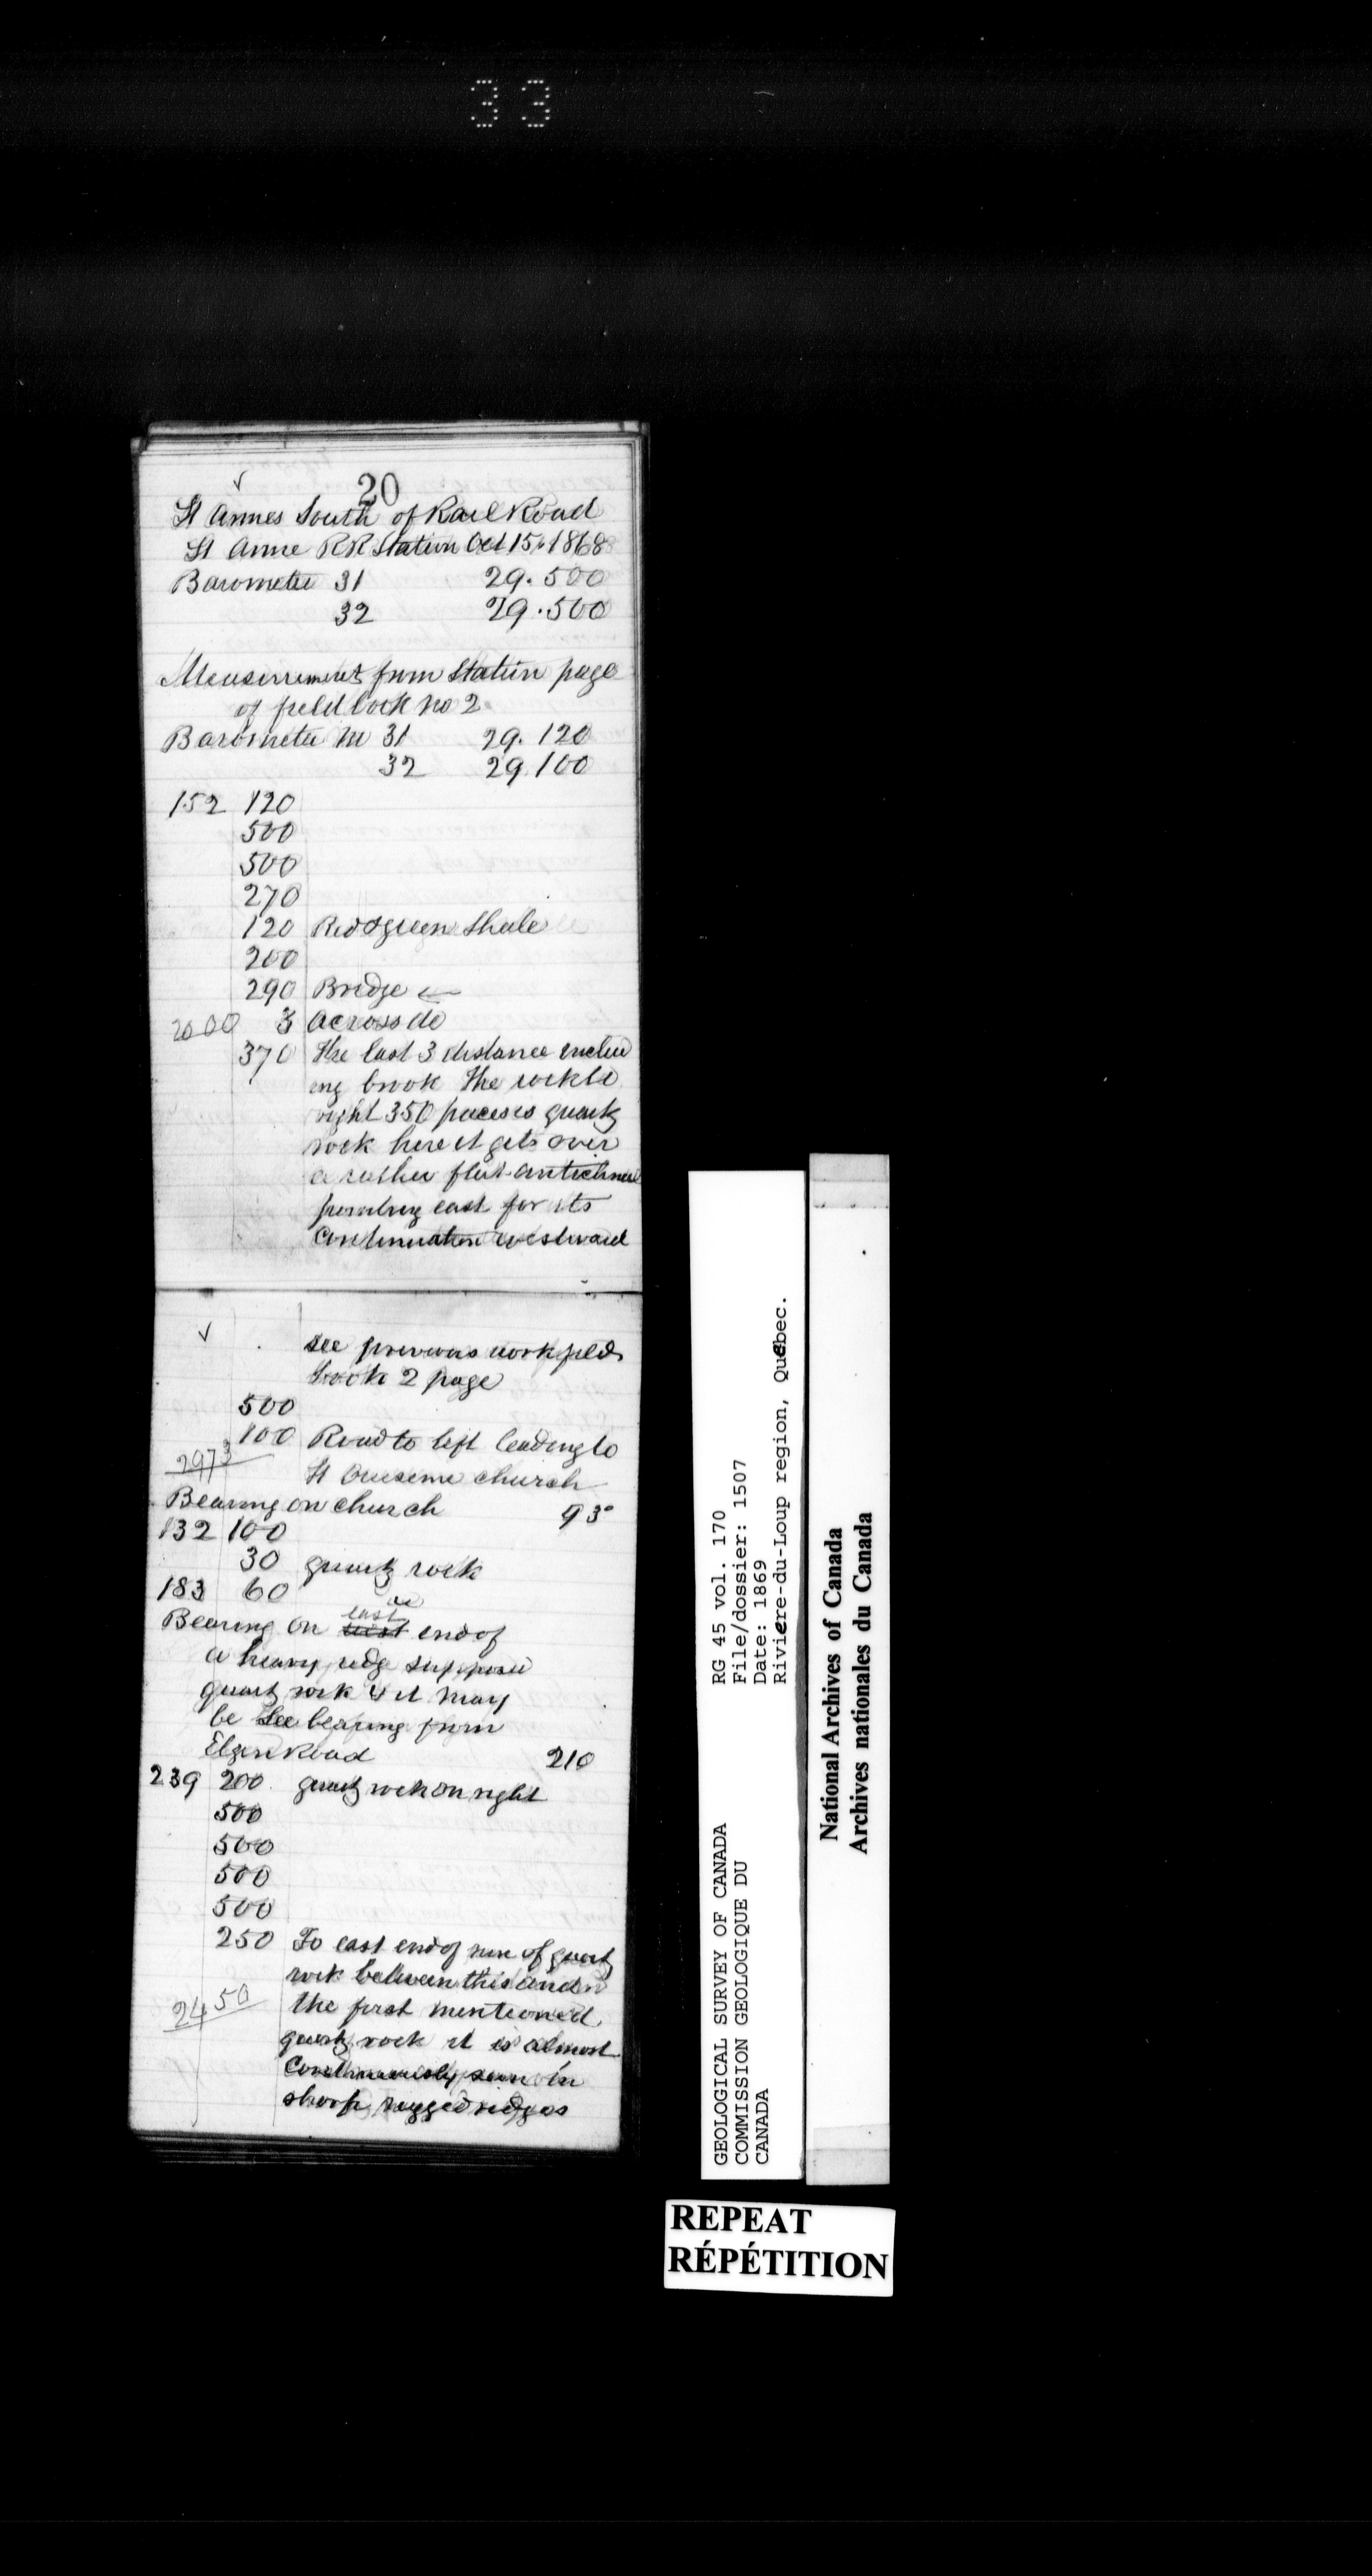 33
20
St Annes South of Rail Road
St Anne RR Station Oct 15th 1868
Barometer 31 29.500
32 29.500
Measurements from Station page
of field book no 2
Barometer M 31 29.120
32 29.100
152 120
500
500
270
120 Red & green Shale
200
290 Bridge ←
2000 3 across do
370 The last 3 distance includ
ing brook The rock to
right 350 paces is quartz
rock here it gets over
a rather flat anticlinal
east for its
continuation westward
see previous work field
book 2 page
500
100 Road to left leading to
2973 St Onesime church
Bearing on church 93°
132 100
30 quartz rock
183 60
Bearing on east end of
a heavy ridge suppose
quartz rock & it may
be See bearing from
Elgin Road 210
239 200 quartz rock on right
500
500
500
500
250 To east end of run of quartz
rock between this and
2450 the first mentioned
quartz rock it is almost
continuously seen in
sharp rugged ridges
GEOLOGICAL SURVEY OF CANADA
COMMISSION GEOLOGIQUE DU
CANADA
RG 45 vol. 170
File/dossier: 1507
Date: 1869
Riviere-du-Loup region, Québec.
National Archives of Canada
Archives nationales du Canada
REPEAT
RÉPÉTITION